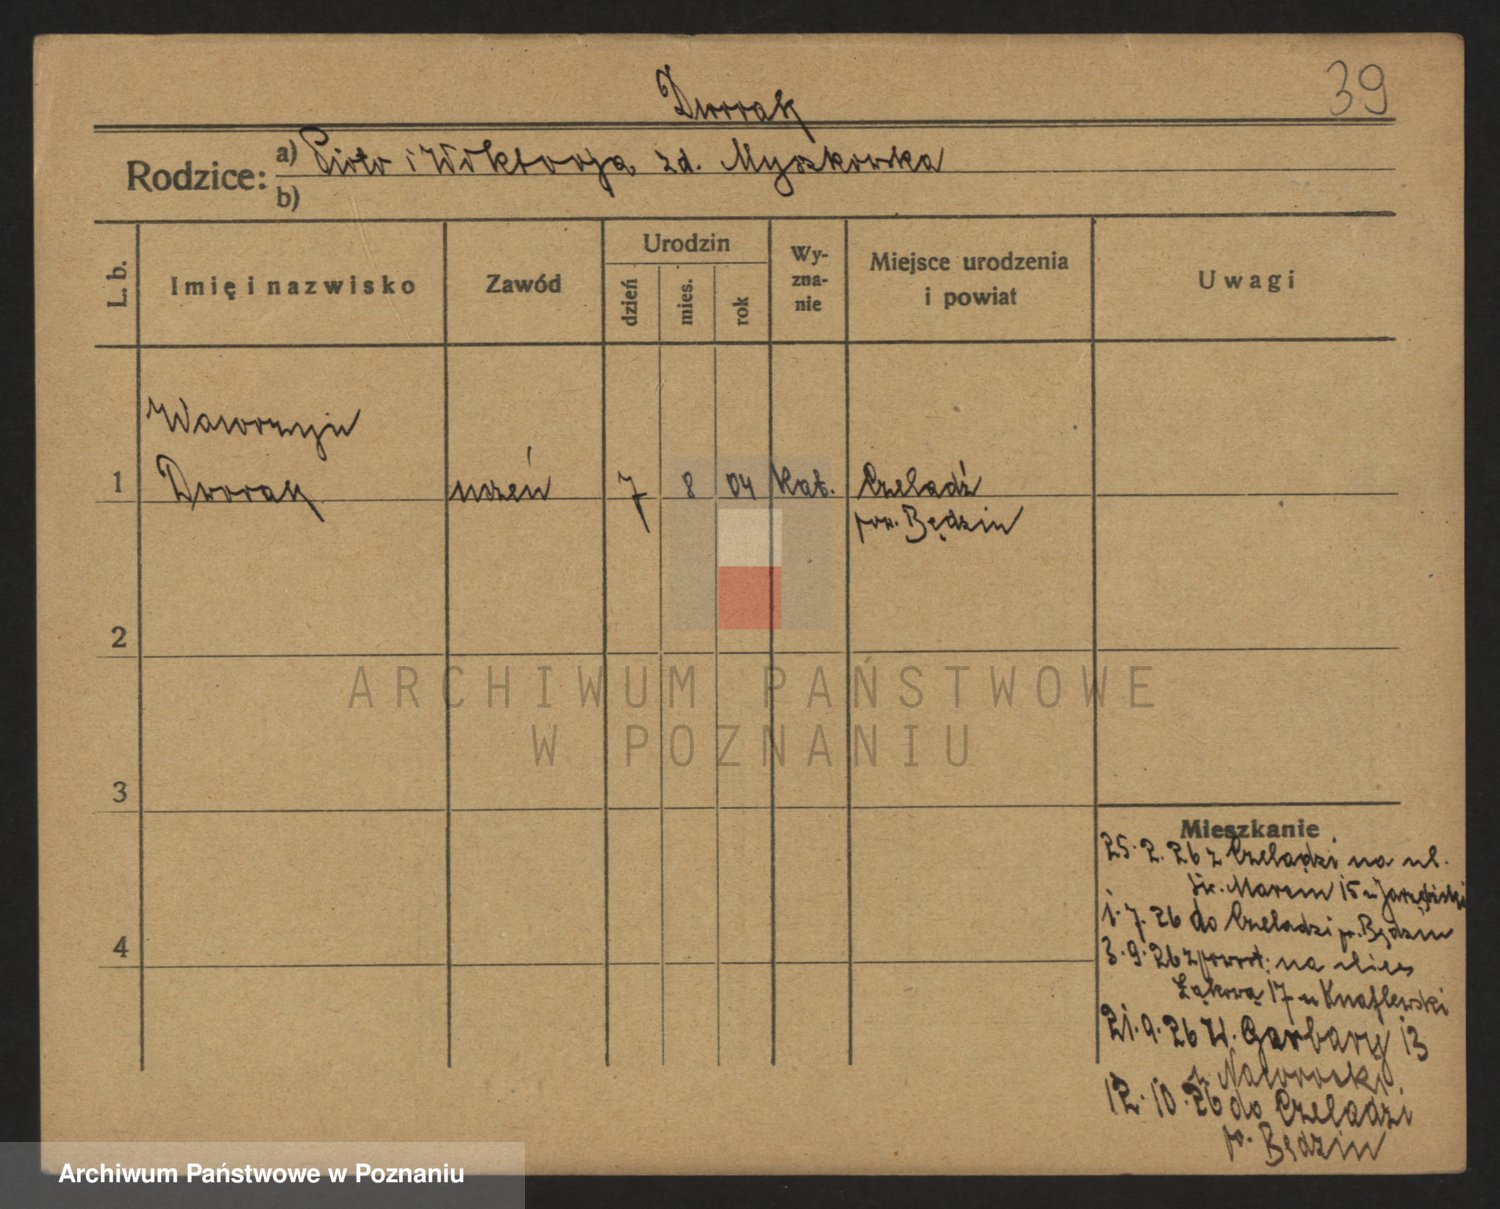 39
Dworak
Rodzice: a) Piotr i Wiktorja zd. Myszkowska
b)
L. b.
Imię i nazwisko
Zawód
Urodzin
dzień
mies.
rok
Wy-
zna-
nie
Miejsce urodzenia
i powiat
Uwagi
Wawrzyn
1 Dworak uczeń 7 8 04 kat. Czeladź
pow. Będzin
2
3
4
Mieszkanie
25.2.26 z Czeladzi na ul.
Św. Marcin 15 u Jarzębski
1.7.26 do Czeladzi p. Będzin
3.9.26 z powrot. na
Łąkowa 17 u Knaflewski
21.9.26 Garbary 13
u Nawrocki
12.10.26 do Czeladzi
p. Będzin
ARCHIWUM PAŃSTWOWE
W POZNANIU
Archiwum Państwowe w Poznaniu